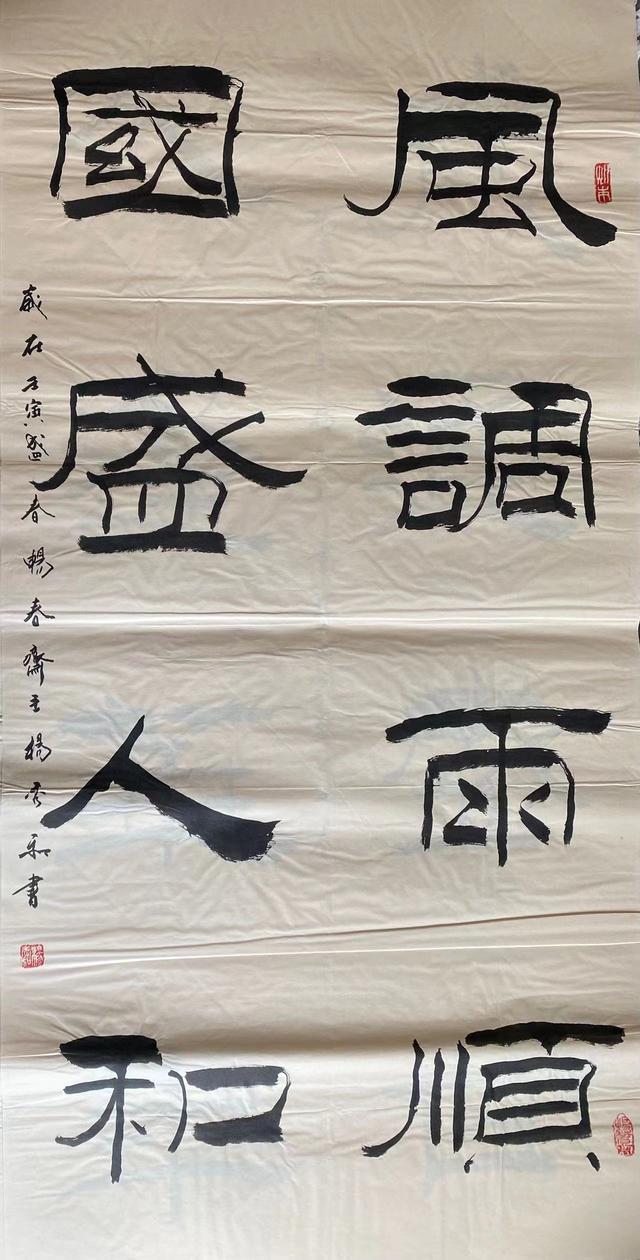 風調雨順
國盛人和
歲在壬寅盛春暢春齋主楊秀和書